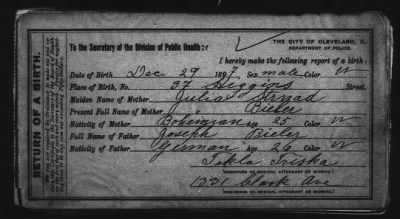 THE CITY OF CLEVELAND, O.
DEPARTMENT OF POLICE.
To the Secretary of the Division of Public Health:
I hereby make the following report of a birth:
Date of Birth Dec 29 1897 Sex male Color W
Place of Birth, No. 37 Higgins Street.
Maiden Name of Mother Julia
Present Full Name of Mother Bieler
Nativity of Mother Bohemian Age 25 Color W
Full Name of Father Joseph Bieler
Nativity of Father German Age 26 Color W
Tekla Triska
SIGNATURE OF MEDICAL ATTENDANT OR MIDWIFE.
1331 Clark Ave
RESIDENCE OF MEDICAL ATTENDANT OR MIDWIFE.
RETURN OF A BIRTH.